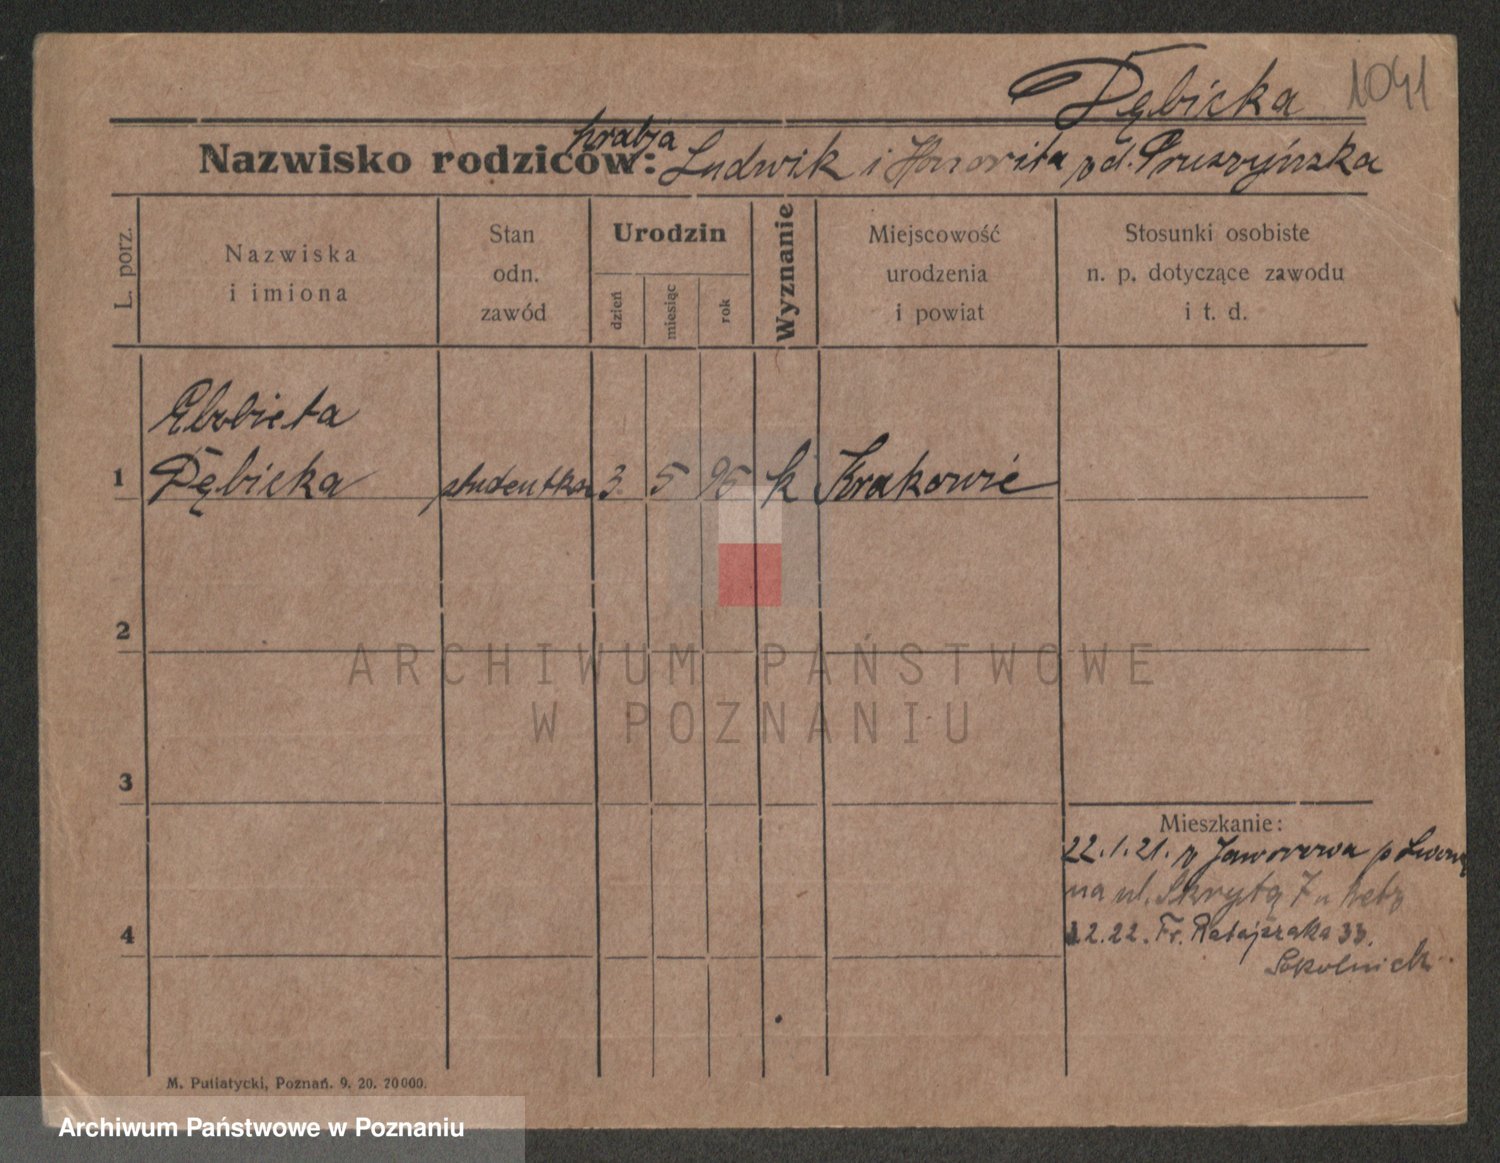 Dębicka 1041
hrabja
Nazwisko rodziców: Ludwik i Honorita zd. Pruszyńska
L. porz.
Nazwiska
i imiona
Stan
odn.
zawód
Urodzin
dzień
miesiąc
rok
Wyznanie
Miejscowość
urodzenia
i powiat
Stosunki osobiste
n. p. dotyczące zawodu
i t. d.
Elżbieta
1 Dębicka studentka 3. 5 95 k Krakowie
2
ARCHIWUM PAŃSTWOWE
W POZNANIU
3
Mieszkanie:
22.1.21. z Jaworowa p
na ul. Skrytą 7 u
4
2.22. Fr. Ratajczaka 33.
Sokolnicki
M. Putiatycki, Poznań. 9. 20. 20000.
Archiwum Państwowe w Poznaniu